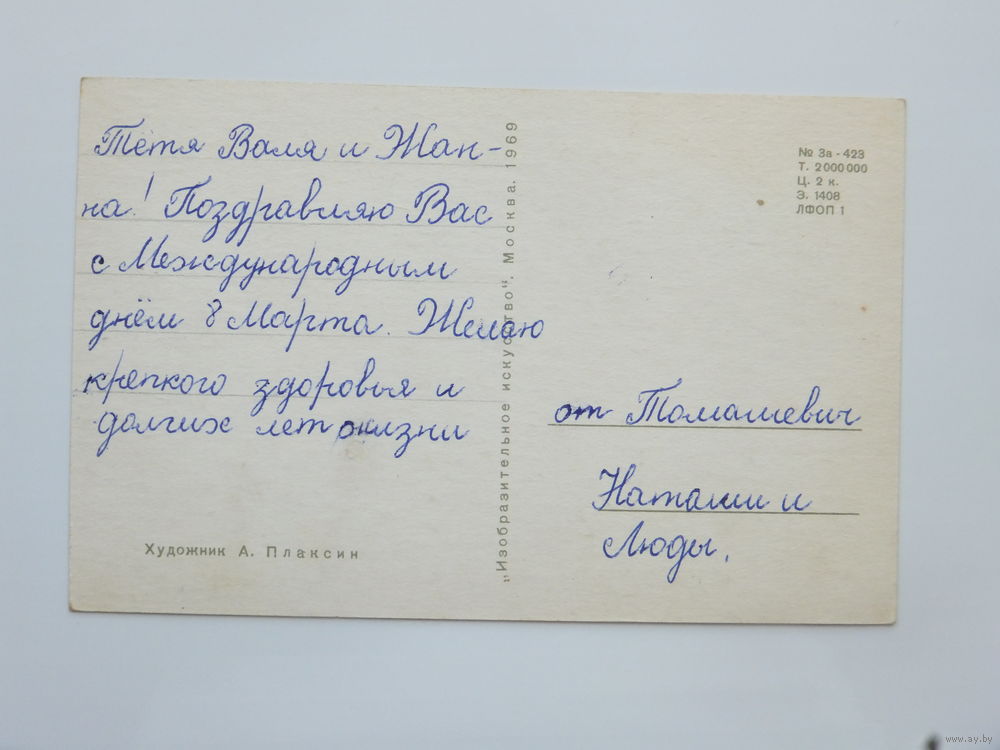 Тётя Валя и Жан-
на! Поздравляю Вас
с Международным
днём 8 Марта. Желаю
крепкого здоровья и
долгих лет жизни
Художник А. Плаксин
„Изобразительное искусство“. Москва. 1969
№ 3а-423
Т. 2000000
Ц. 2 к.
З. 1408
ЛФОП 1
от Томашевич
Наташи и
Люды.
www.ay.by